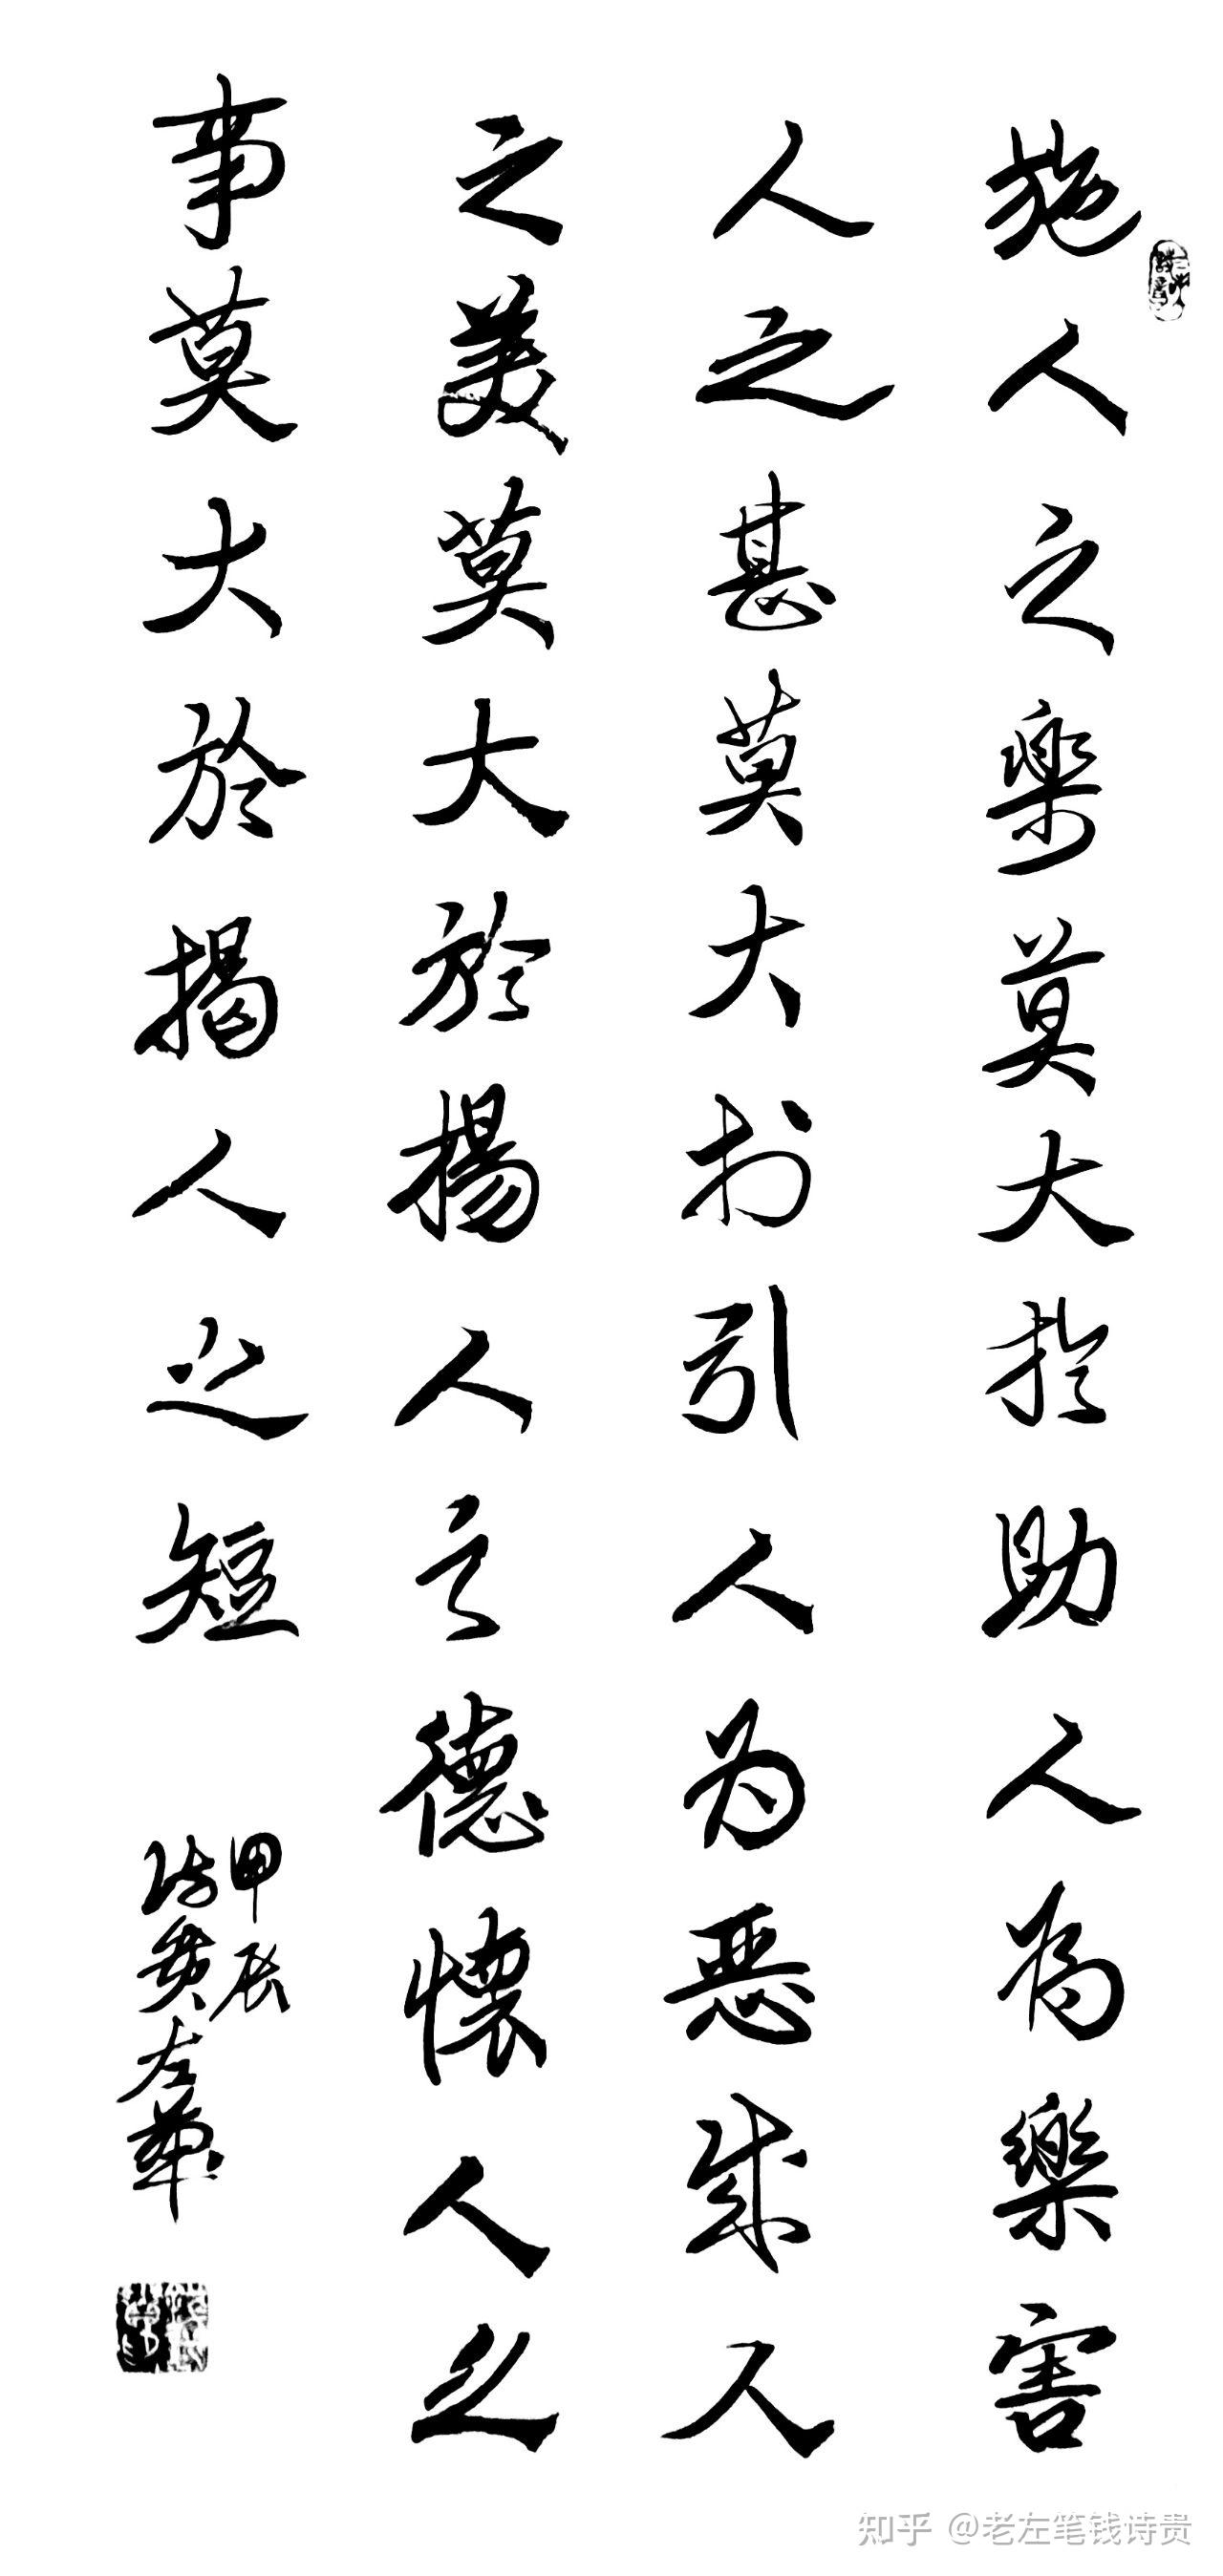 施人之樂莫大扵助人為樂害
人之甚莫大扵引人为恶成人
之美莫大於揚人之德懷人之
事莫大於揭人之短
甲辰
诗贵左華
知乎 @老左笔钱诗贵